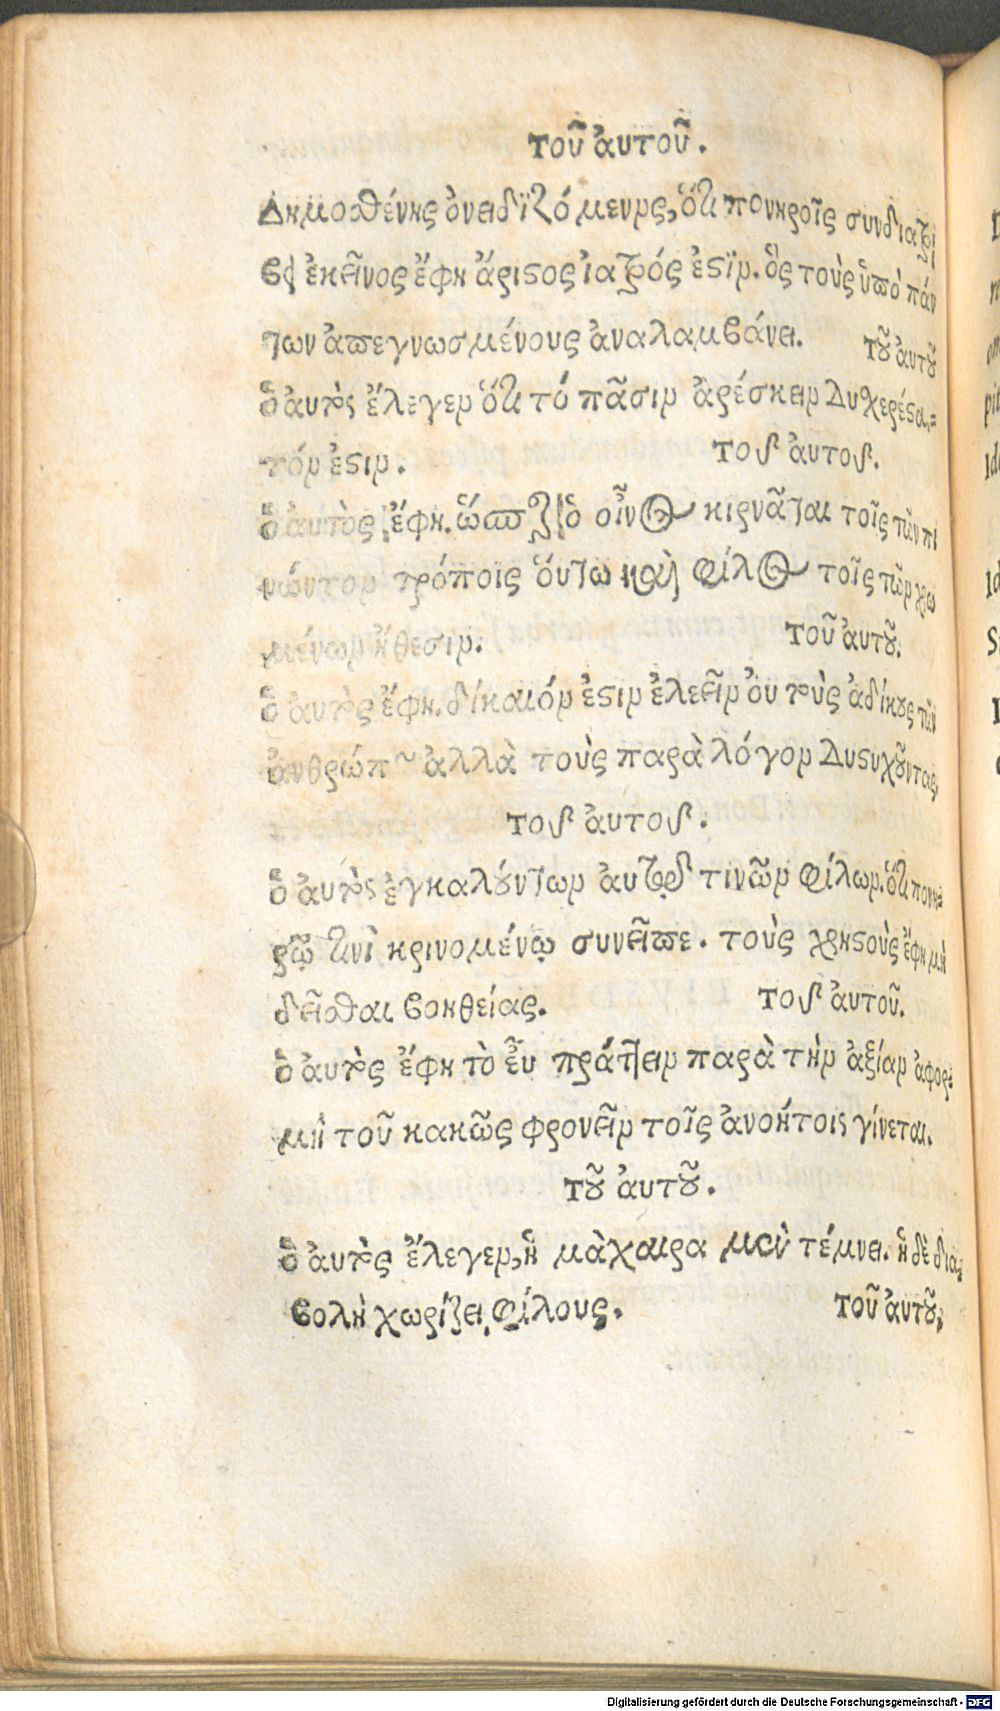 τοῦ ἀυτοῦ.
Δημοσθένης ὀνειδιζόμενος, ὅτι πονηροῖς συνδιατρί
βει ἐκεῖνος ἔφη ἄριστος ἰατρός ἐστϊν. ὃς τοὺς ὑπὸ πάν
των ἀπεγνωσμένους ἀναλαμβάνει. τοῦ ἀυτοῦ
ὃ ἀυτὸς ἔλεγεν ὅτι τό πᾶσιν ἀρέσκειν Δυχερέστα=
τόν ἐστιν. τοῦ ἀυτοῦ.
ὃ ἀυτὸς ἔφη. ὥσπερ ὁ οἶνος κιρνᾶται τοῖς τῶν πι
νώντον τρόποις ὅυτω καὶ φίλος τοῖς τῶν χρω
μένων ἤθεσιν. τοῦ ἀυτοῦ.
ὃ ἀυτὸς ἔφη. δίκαιόν ἐστιν ἐλεεῖν ὀυ τοὺς ἀδίκους τῶν
ἀνθρώπων ἀλλὰ τοὺς παρὰ λόγον Δυστυχοῦντας,
τοῦ ἀυτοῦ.
ὃ ἀυτὸς ἐγκαλούντων ἀυτῷ τινῶν φίλων. ὅτι πονη=
ρῷ τινὶ κρινομένῳ συνεῖπε. τοὺς χρηστοὺς ἔφη μὴ
δεῖσθαι βοηθείας. τοῦ ἀυτοῦ.
ὃ ἀυτὸς ἔφη τὸ εὖ πράττειν παρὰ τὴν ἀξίαν ἀφορ=
μὴ τοῦ κακῶς φρονεῖν τοῖς ἀνοήτοις γίνεται.
τοῦ ἀυτοῦ.
ὃ ἀυτὸς ἔλεγεν, ἣ μὰχαιρα μεν τέμνει. ἡ δὲ δια=
βολὴ χωρίζει φίλους. τοῦ ἀυτοῦ,
Digitalisierung gefördert durch die Deutsche Forschungsgemeinschaft - DFG